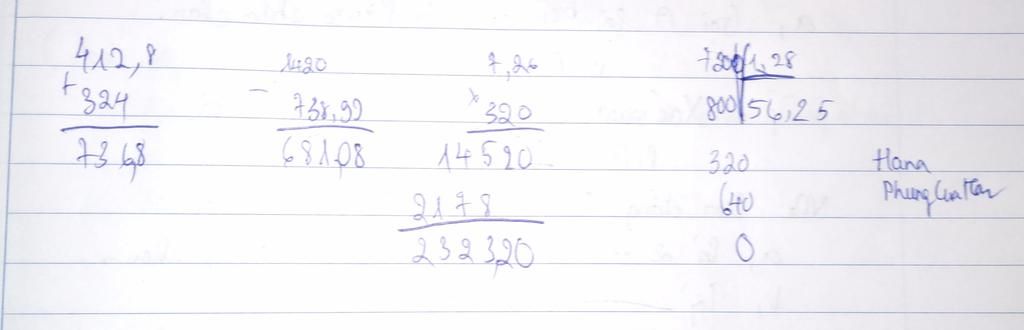 412,8 1420 7,26 7200 1,28
+ - x
324 738,92 320 800 56,25
736,8 681,08 14520 320 Hana
2178 640
2323,20 0